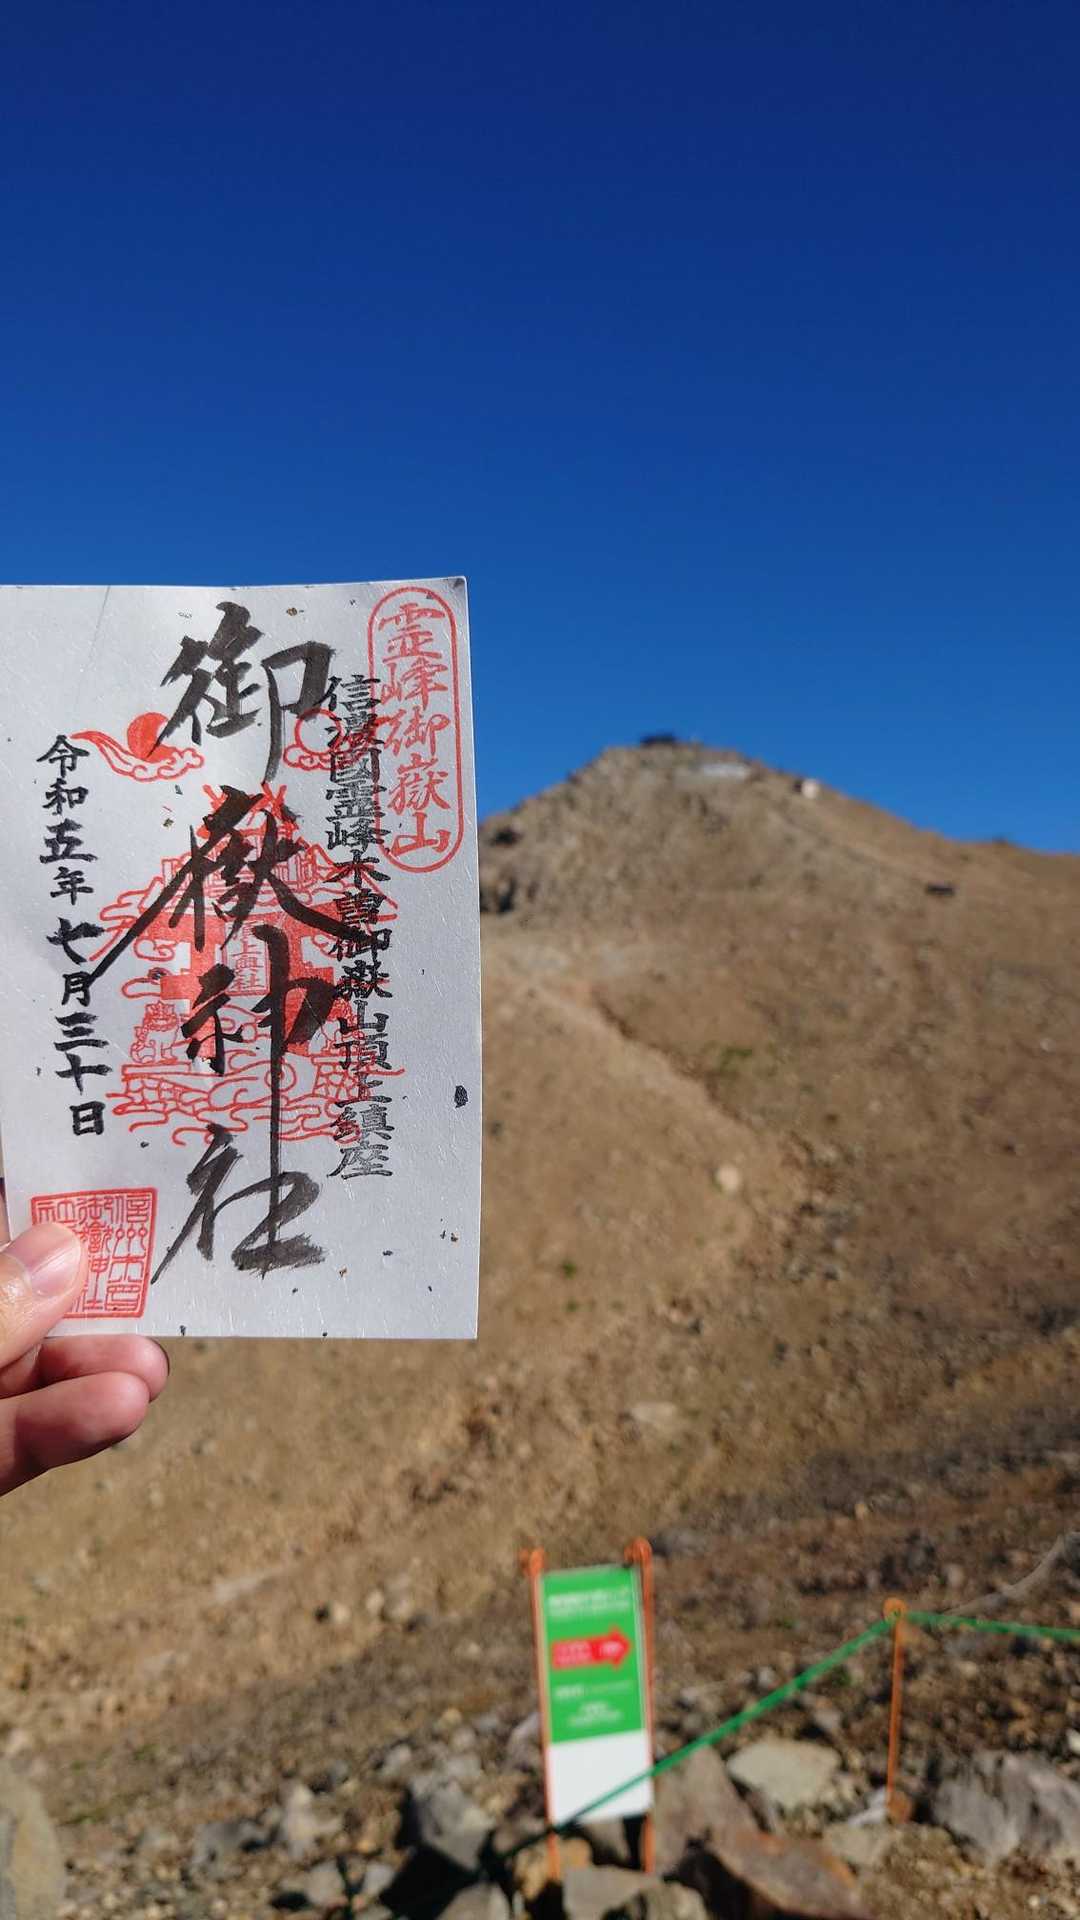 霊峰御嶽山
信濃國霊峰木曽御嶽山頂上鎮座
御嶽神社
令和五年七月三十日